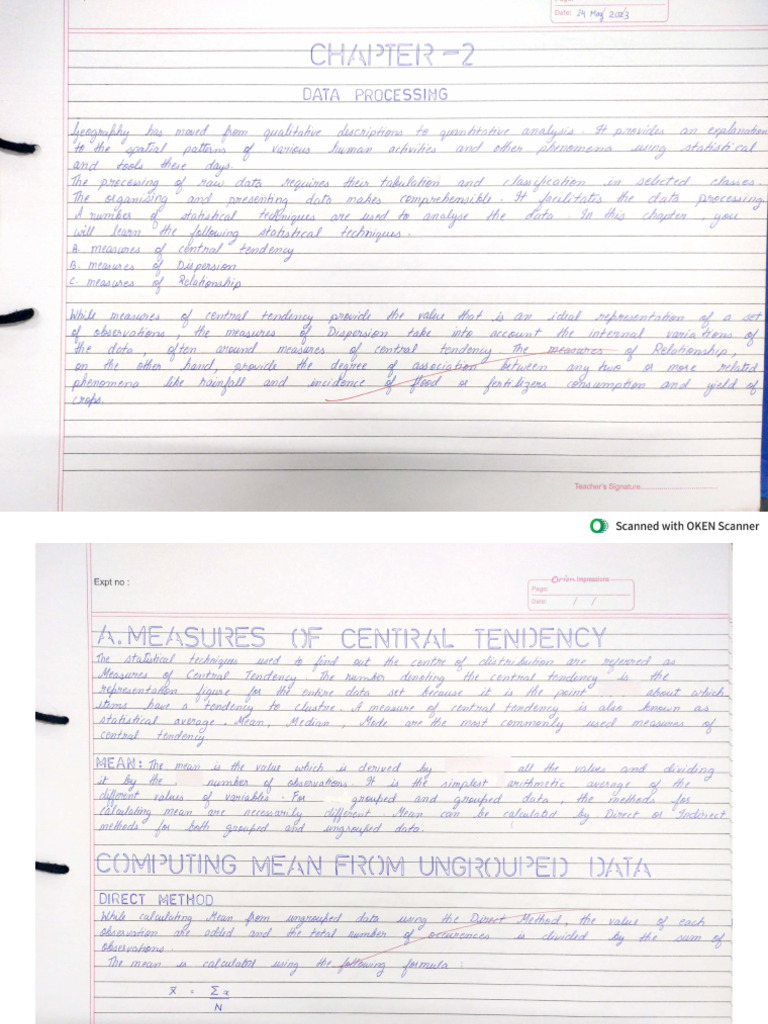 Date: 24 May 2023
CHAPTER-2
DATA PROCESSING
Geography has moved from qualitative descriptions to quantitative analysis. It provides an explanation
to the spatial patterns of various human activities and other phenomena using statistical
and tools these days.
The processing of raw data requires their tabulation and classification in selected classes.
The organising and presenting data makes comprehensible. It facilitates the data processing.
A number of statistical techniques are used to analyse the data. In this chapter, you
will learn the following statistical techniques.
A. measures of central tendency
B. measures of Dispersion
C. measures of Relationship
While measures of central tendency provide the value that is an ideal representation of a set
of observations, the measures of Dispersion take into account the internal variations of
the data, often around measures of central tendency. The measures of Relationship,
on the other hand, provide the degree of association between any two or more related
phenomena like rainfall and incidence of flood or fertilizers consumption and yield of
crops.
Teacher's Signature
Scanned with OKEN Scanner
Expt no :
Orion Impressions
Page:
Date: / /
A. MEASURES OF CENTRAL TENDENCY
The statistical techniques used to find out the centre of distribution are referred as
Measures of Central Tendency. The number denoting the central tendency is the
representation figure for the entire data set because it is the point about which
items have a tendency to clustre. A measure of central tendency is also known as
statistical average. Mean, Median, Mode are the most commonly used measures of
central tendency.
MEAN: The mean is the value which is derived by all the values and dividing
it by the number of observations. It is the simplest arithmetic average of the
different values of variables. For grouped and grouped data, the methods for
calculating mean are necessarily different. Mean can be calculated by Direct or Indirect
methods for both grouped and ungrouped data.
COMPUTING MEAN FROM UNGROUPED DATA
DIRECT METHOD
While calculating Mean from ungrouped data using the Direct Method, the value of each
observation are added and the total number of occurences is divided by the sum of
observations.
The mean is calculated using the following formula :
x̄ = Σx
N